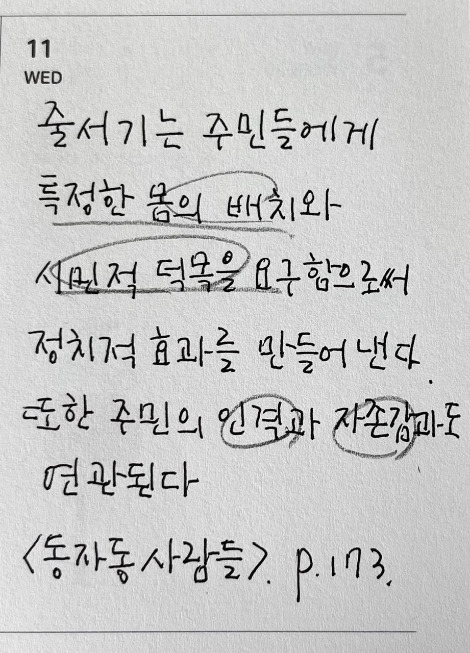 11
WED
줄서기는 주민들에게
특정한 몸의 배치와
시민적 덕목을 요구함으로써
정치적 효과를 만들어 낸다.
또한 주민의 인격과 자존감과도
연관된다
<동자동 사람들>. p.173.